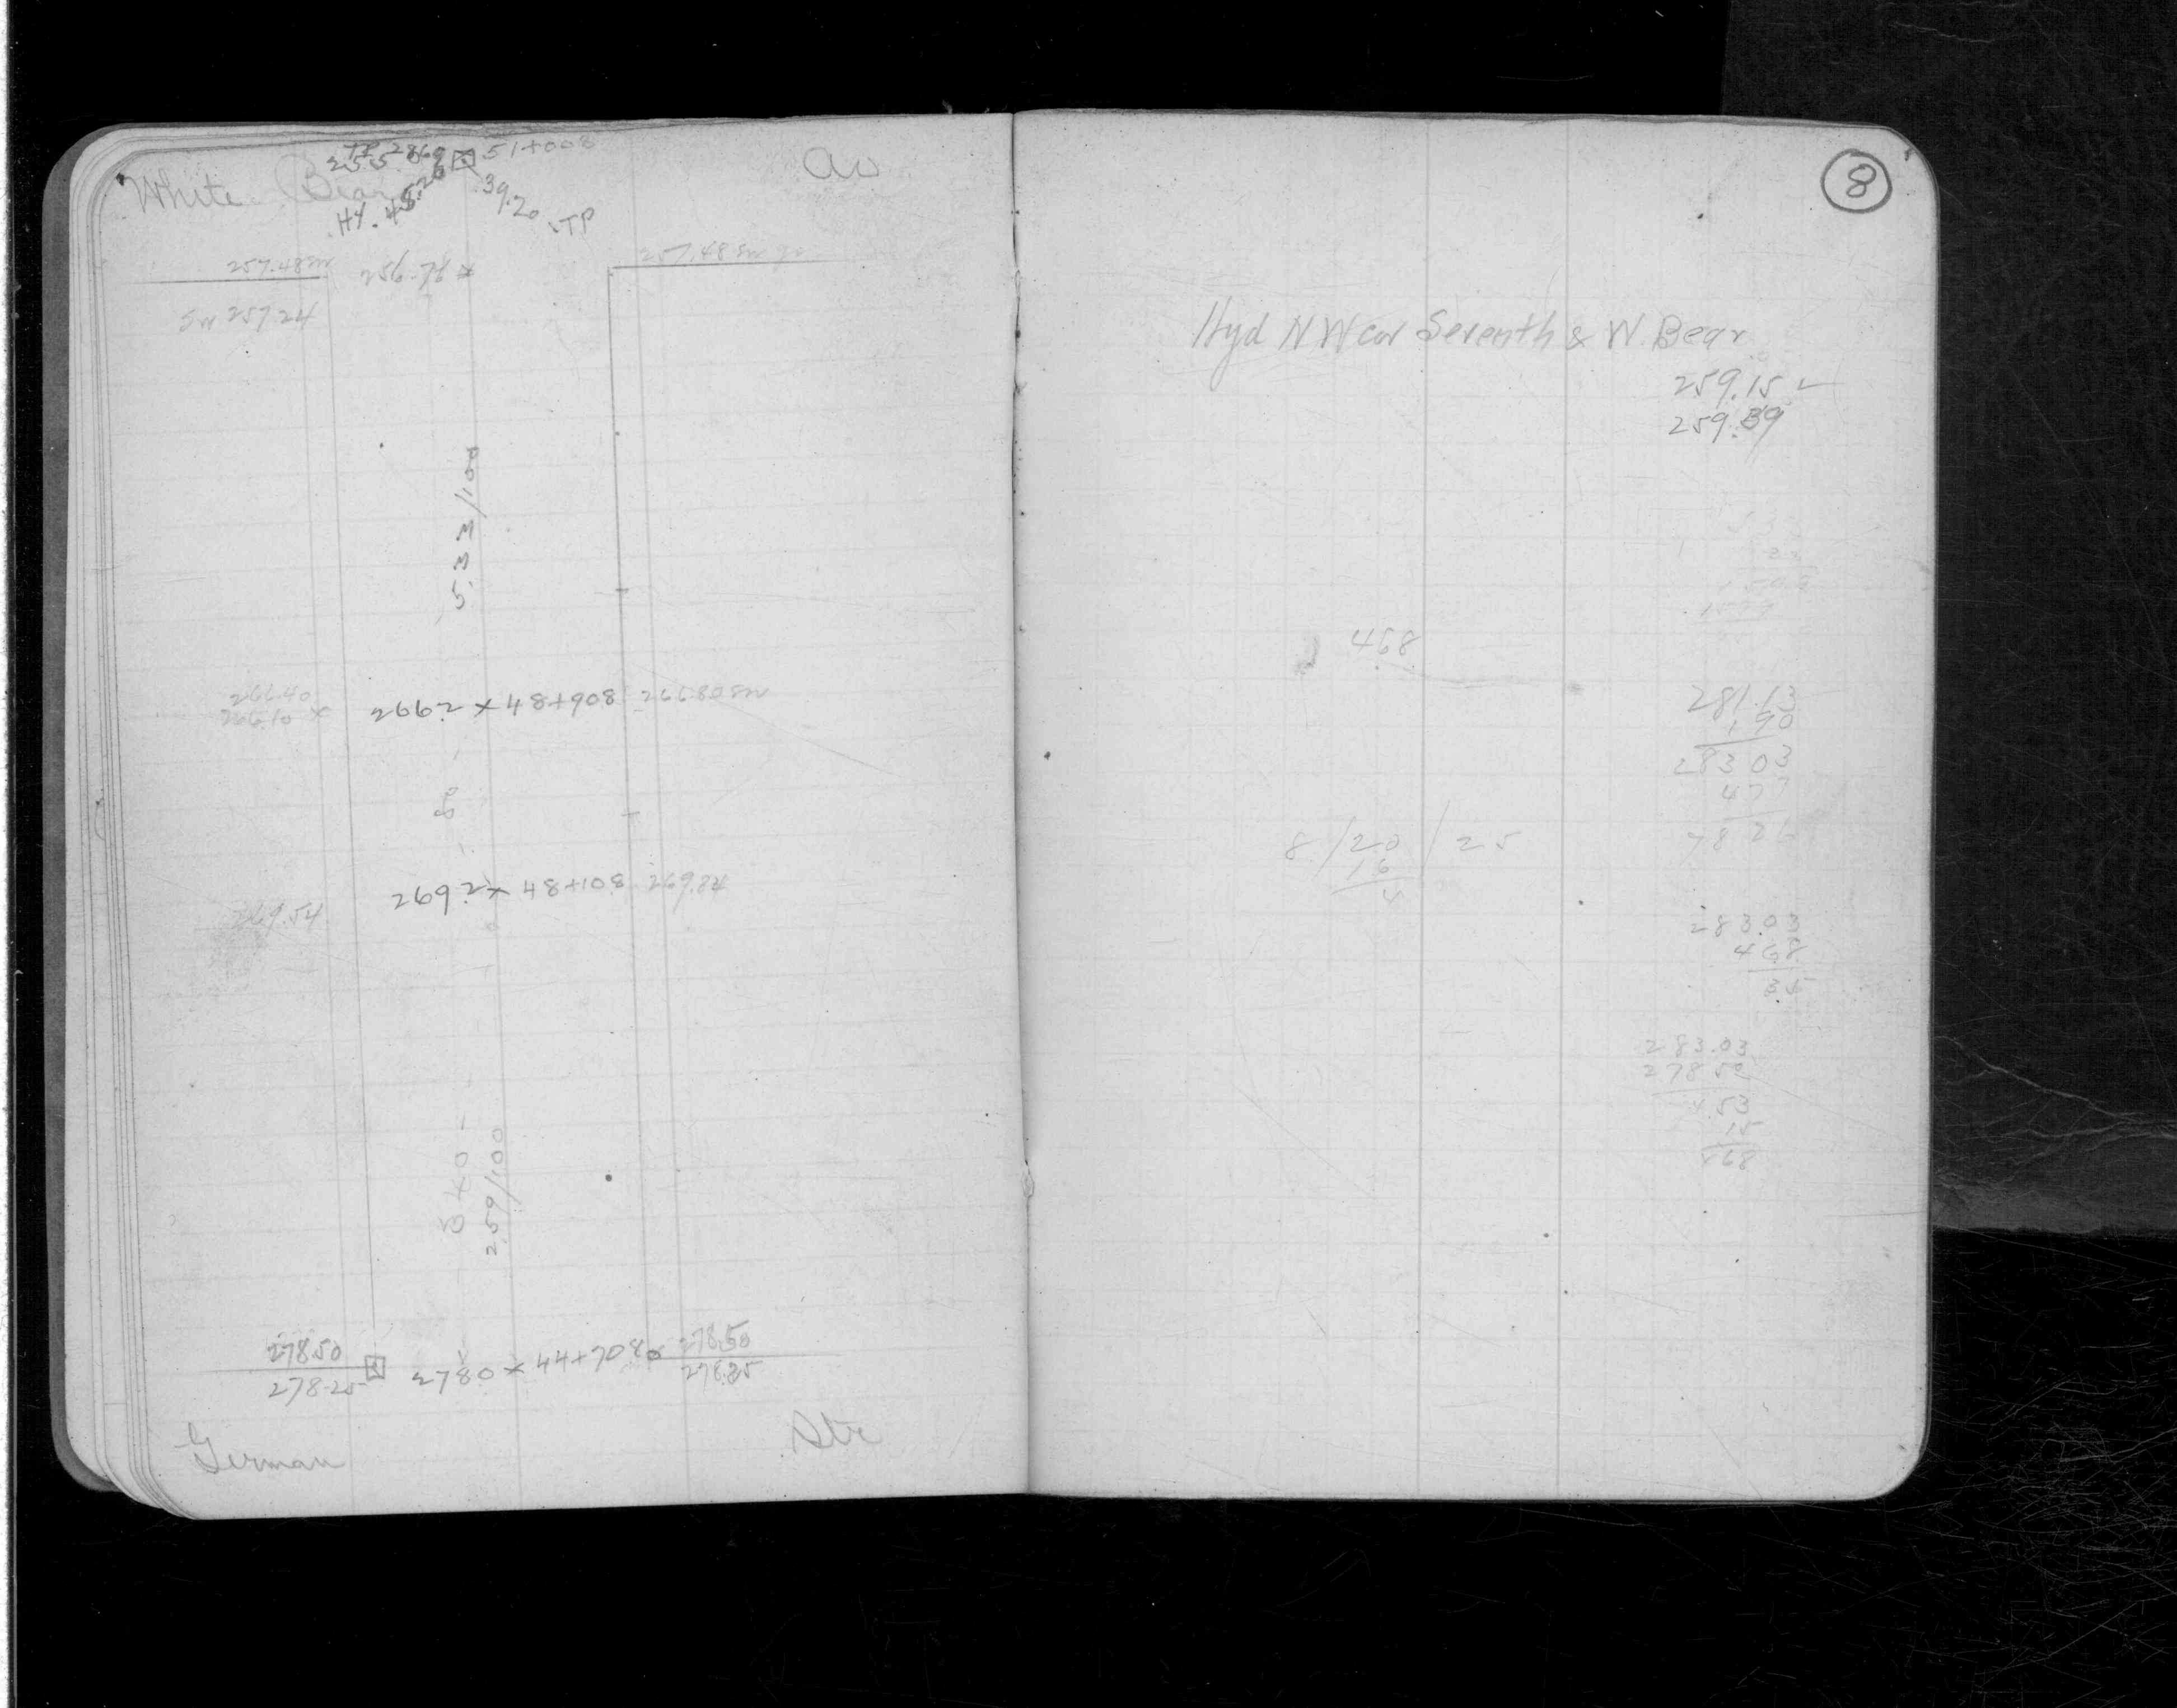 White Bear Av
51+008
39.20 TP
257.48
256.78 x
257.48
Sw 257 24
5.33/100
266.40
266.10 x
266.2 x 48+908 266.80 sw
8
269.2 x 48+108 269.84
269.54
340
2.59/100
278.50
278.25
2780 x 44+708
278.50
278.25
German Str
8
Hyd N W cor Seventh & W. Bear
259.15
259.39
468
281.13
1.90
283 03
4 77
78 26
8/20/25
16
4
283.03
4 68
35
283.03
278 50
4.53
15
468